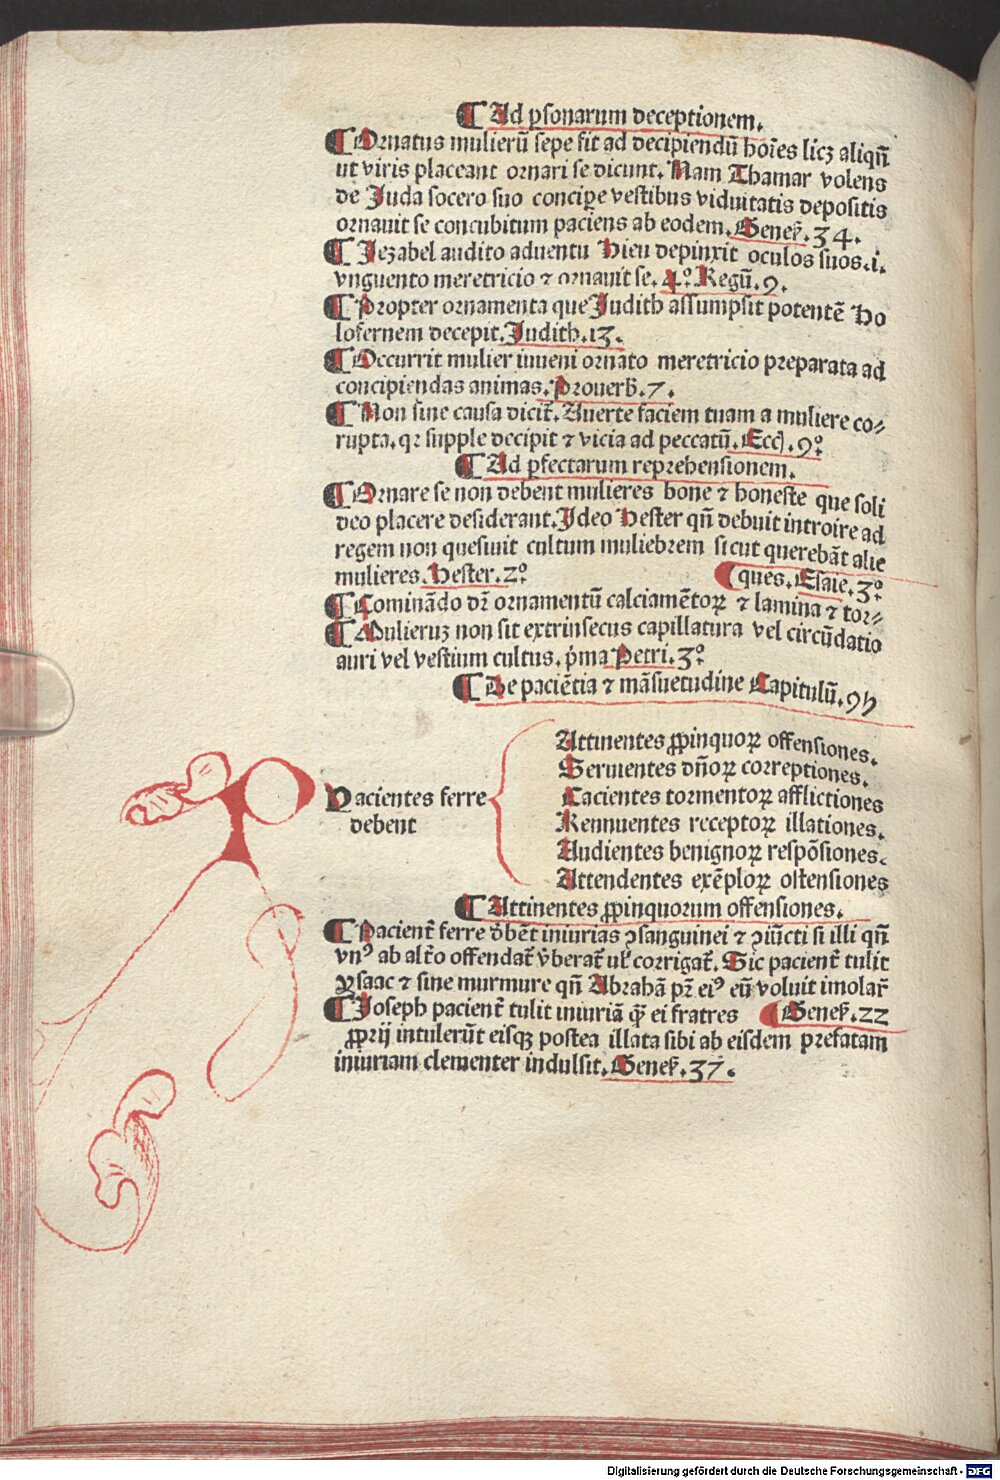 ¶ Ad ꝑsonarum deceptionem.
¶ Ornatus mulierū sepe fit ad decipiendū hoīes licꝫ aliqn̄
ut viris placeant ornari se dicunt. Nam Thamar volens
de Juda socero suo concipe vestibus viduitatis depositis
ornauit se concubitum paciens ab eodem. Geneẜ. 34.
¶ Jezabel audito aduentu Hieu depinxit oculos suos .i.
vnguento meretricio ⁊ ornauit se. 4.° Regū. 9.
¶ Propter ornamenta que Judith assumpsit potentē Ho
lofernem decepit. Judith. 13.
¶ Occurrit mulier iuueni ornato meretricio preparata ad
concipiendas animas. Prouerb̄. 7.
¶ Non sine causa dicit̄. Auerte faciem tuam a muliere co⸗
rupta. qꝛ supple decipit ⁊ vicia ad peccatū. Eccl̄. 9.°
¶ Ad ꝑfectarum reprehensionem.
¶ Ornare se non debent mulieres bone ⁊ honeste que soli
deo placere desiderant. Ideo Hester qn̄ debuit introire ad
regem non quesiuit cultum muliebrem sicut querebāt alie
mulieres. Hester. 2.°
( ques. Esaie. 3.°
¶ Cominādo dr̄ ornamentū calciamētoꝝ ⁊ lamina ⁊ tor⸗
¶ Mulieruꝫ non sit extrinsecus capillatura vel circūdatio
auri vel vestium cultus. p̄ma Petri. 3.°
¶ De paciētia ⁊ māsuetudine Capitulū. 9h
Pacientes ferre
debent
Attinentes ꝓpinquoꝝ offensiones.
Seruientes dn̄oꝝ correptiones.
Tacientes tormentoꝝ afflictiones
Rennuentes receptoꝝ illationes.
Audientes benignoꝝ respōsiones.
Attendentes exēploꝝ ostensiones
¶ Attinentes ꝓpinquorum offensiones.
¶ Pacient̄ ferre d̄bēt iniurias ꝯsanguinei ⁊ ꝯiūcti si illi qn̄
vnꝰ ab alt̄o offendat̄ v̄berat̄ ul̓ corrigat̄. Sic pacient̄ tulit
Ysaac ⁊ sine murmure qn̄ Abrahā pr̄ eiꝰ eū voluit imolar̄
( Geneẜ. 22
¶ Joseph pacient̄ tulit iniuriā quā ei fratres
ꝓprij intulerūt eisqꝫ postea illata sibi ab eisdem prefatam
iniuriam clementer indulsit. Geneẜ. 37.
Digitalisierung gefördert durch die Deutsche Forschungsgemeinschaft - DFG